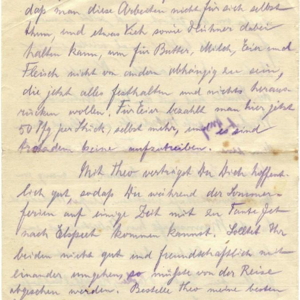 daß man diese Arbeiten nicht für sich selbst
thun, und etwas Vieh sowie Hühner dabei
halten kann, um für Butter, Milch, Eier und
Fleisch nicht von andern abhängig zu sein,
die jetzt alles festhalten und nichts heraus-
rücken wollen. Für Eier bezahlt man hier jetzt
50 Pfg per Stück, selbst mehr, und es sind
trotzdem keine aufzutreiben.
Mit Theo verträgst Du Dich hoffent-
lich gut, sodaß Du während der Sommer-
ferien auf einige Zeit mit zu Tante Jet
nach Elspeet kommen kannst. Solltet Ihr
beiden nicht gut und freundschaftlich mit
einander umgehen, so müßte von der Reise
abgesehen werden. Bestelle Theo meine besten